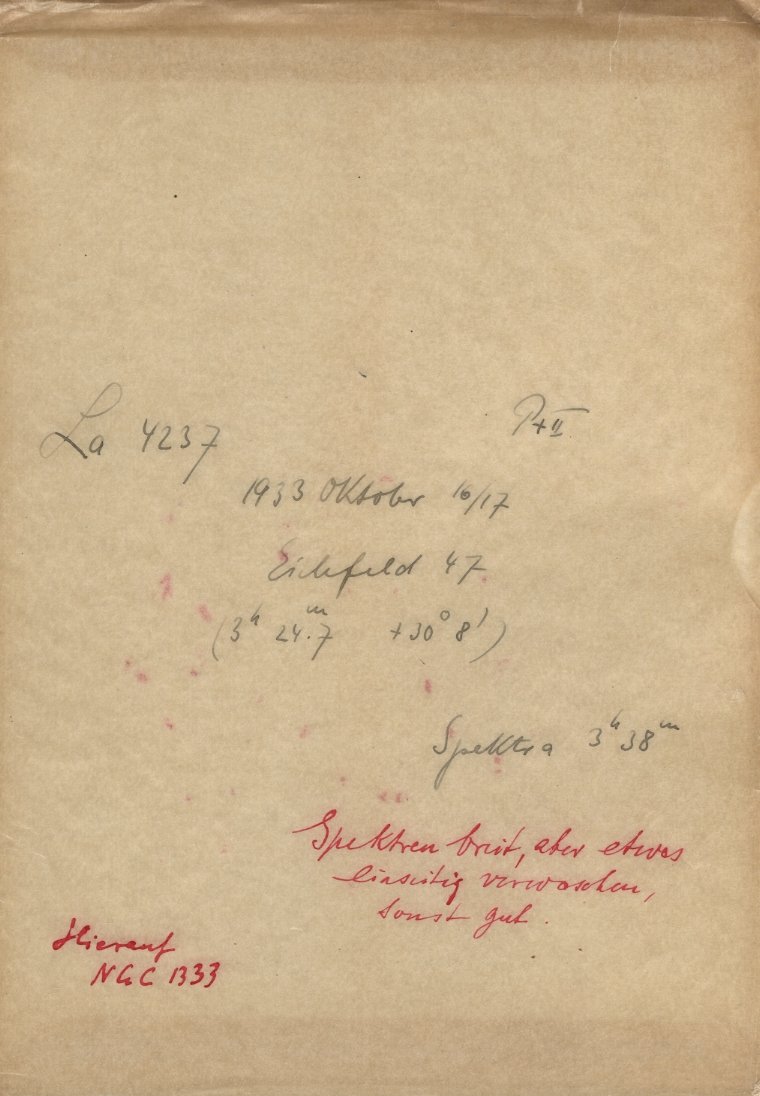 La 4237 P+II
1933 Oktober 16/17
Eichfeld 47
(3h 24m.7 +30° 8')
Spektra 3h 38m
Spektren breit, aber etwas
einseitig verwaschen,
sonst gut.
Hierauf
NGC 1333